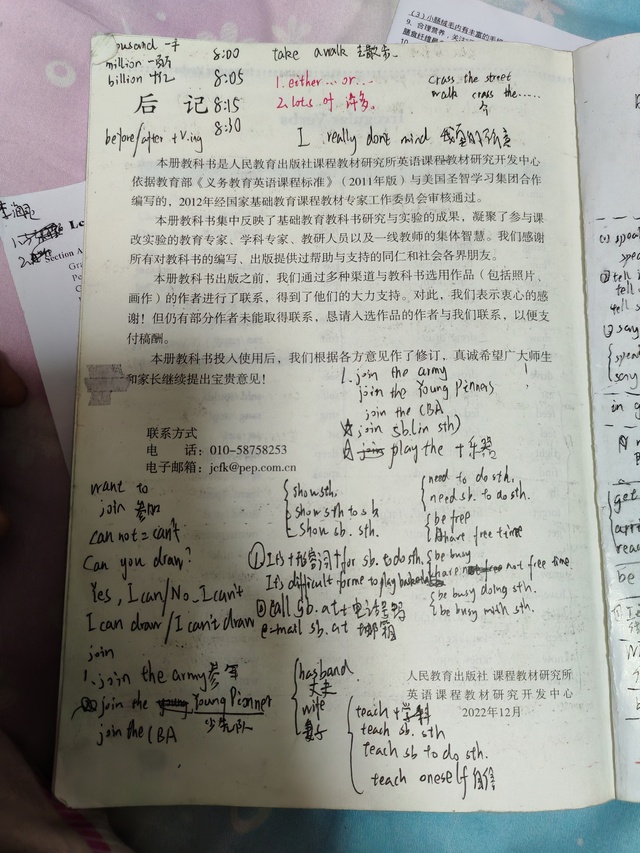 million
billion
8:00
8:05
8:15
8:30
take a walk 去散步.
1. either ... or ...
2. lots of 许多.
cross the street
walk cross the......
before/after + V.ing
I really don't mind
后 记
本册教科书是人民教育出版社课程教材研究所英语课程教材研究开发中心
依据教育部《义务教育英语课程标准》（2011年版）与美国圣智学习集团合作
编写的，2012年经国家基础教育课程教材专家工作委员会审核通过。
本册教科书集中反映了基础教育教科书研究与实验的成果，凝聚了参与课
改实验的教育专家、学科专家、教研人员以及一线教师的集体智慧。我们感谢
所有对教科书的编写、出版提供过帮助与支持的同仁和社会各界朋友。
本册教科书出版之前，我们通过多种渠道与教科书选用作品（包括照片、
画作）的作者进行了联系，得到了他们的大力支持。对此，我们表示衷心的感
谢！但仍有部分作者未能取得联系，恳请入选作品的作者与我们联系，以便支
付稿酬。
本册教科书投入使用后，我们根据各方意见作了修订，真诚希望广大师生
和家长继续提出宝贵意见！
1. join the army
join the Young Pinners
join the CBA
☆ join sb.(in sth)
☆ play the + 乐器
联系方式
电 话：010-58758253
电子邮箱：jcfk@pep.com.cn
want to
join 参加
can not = can't
Can you draw?
Yes, I can/No, I can't
I can draw/I can't draw
join
1. join the army 参军
② join the Young Pionner
少先队
join the CBA
show sth.
show sth to sb
show sb. sth.
need to do sth.
need sb. to do sth.
be free
have free time
① It's + 形容词 + for sb. to do sth.
It's difficult for me to play
be busy
have not free time
② call sb. at + 电话号码
e-mail sb. at 邮箱
be busy doing sth.
be busy with sth.
hasband
丈夫
wife
妻子
人民教育出版社 课程教材研究所
英语课程教材研究开发中心
2022年12月
teach + 学科
teach sb. sth
teach sb to do sth.
teach oneself 自学
（3）小肠绒毛内有丰富的毛细